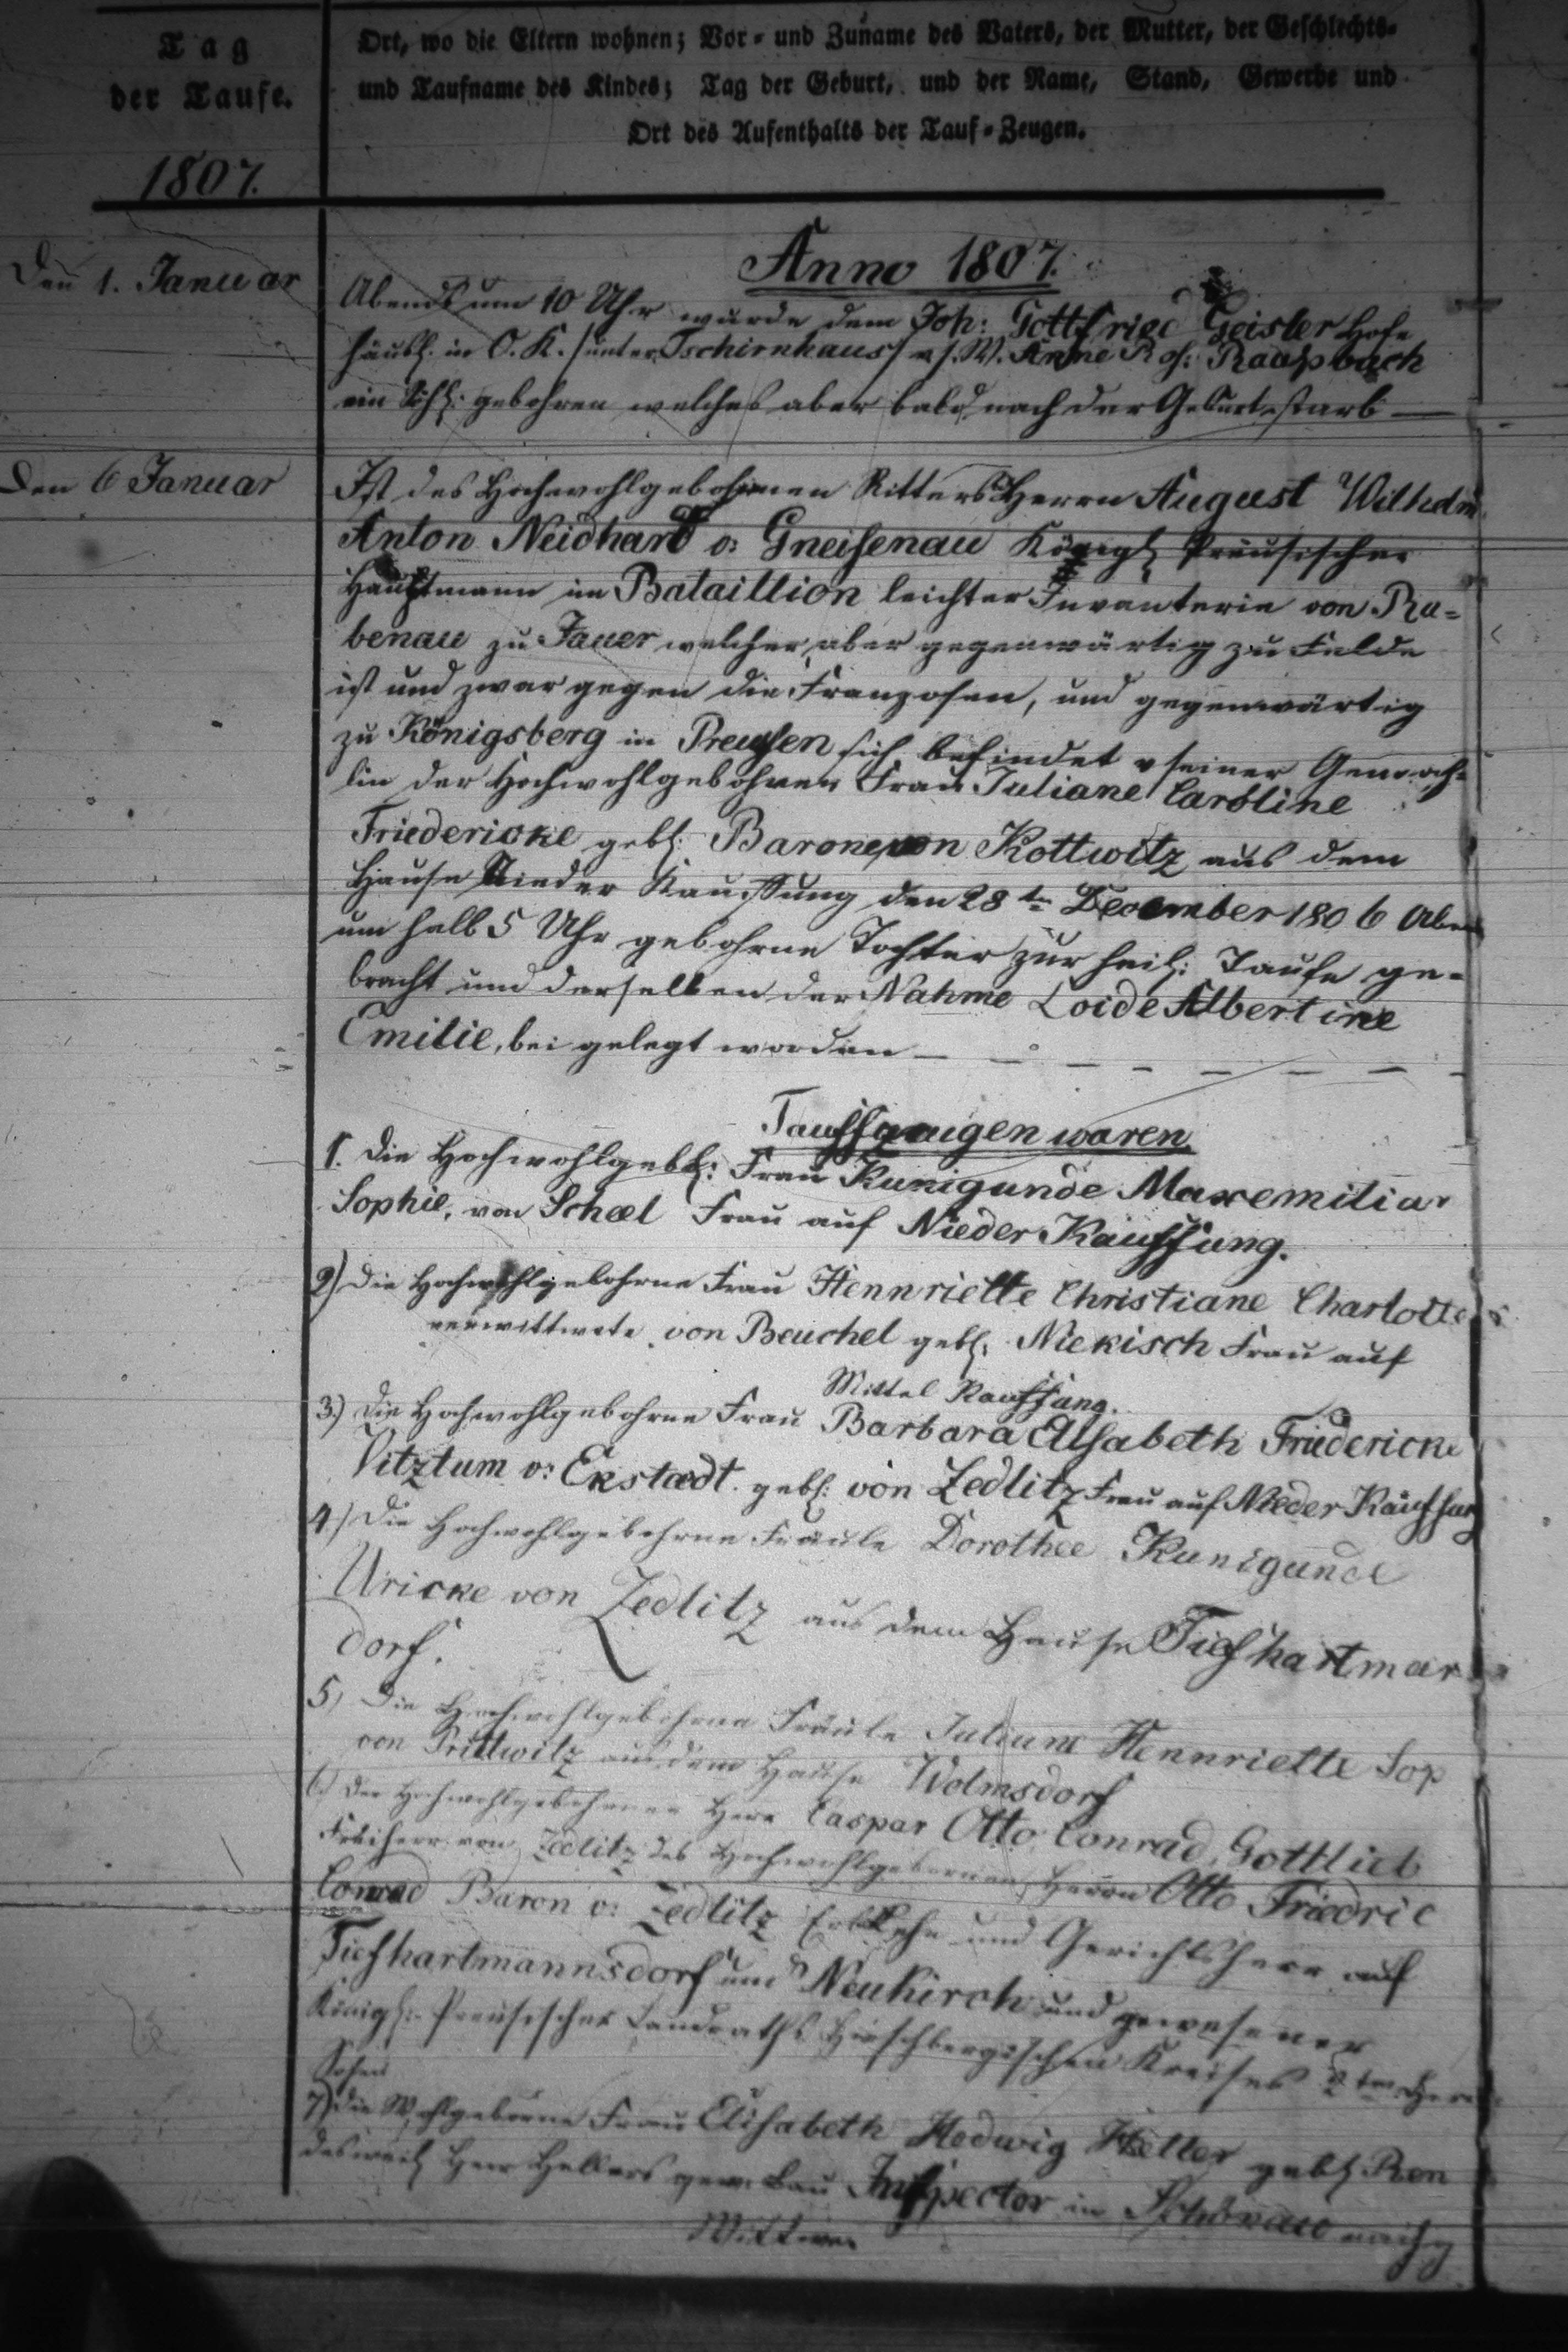 Tag
der Taufe.
1807.
Ort, wo die Eltern wohnen; Vor- und Zuname des Vaters, der Mutter, der Geschlechts-
und Taufname des Kindes; Tag der Geburt, und der Name, Stand, Gewerbe und
Ort des Aufenthalts der Tauf-Zeugen.
Anno 1807.
Den 1. Januar
Abends um 10 Uhr wurde dem Joh: Gottfried Geisler Hofe
häusl. in O. K. /unter Tschirnhaus/ v. s. W. Anne Ros: Raupbach
ein Söhl: gebohren welches aber bald nach der Geburt starb —
Den 6 Januar
Ist des Hochwohlgebohrnen Ritters Herrn August Wilhelm
Anton Neidhard v: Gneisenau Königl Preusischer
Hauptmann im Bataillion leichter Invanterie von Ra=
benau zu Jauer welcher aber gegenwärtig zu Felde
ist und zwar gegen die Franzosen, und gegenwärtig
zu Königsberg in Preusen sich befindet v seiner Gemach=
lin der Hochwohlgebohren Frau Juliane Caroline
Friedericke gebl: Barone von Kottwitz aus dem
Hause Nieder Kauffung den 28 tn December 1806 Aben
um halb 5 Uhr gebohrne Tochter zur heil: Taufe ge=
bracht und derselben der Nahme Loide Albertine
Emilie, bei gelegt worden — — — — — —
Taufzeugen waren.
1. Die Hochwohlgebl: Frau Kunigunde Maxemilia
Sophie, von Schæl Frau auf Nieder Kauffung.
2) Die Hochwohlgebohrne Frau Hennriette Christiane Charlotte
verwittwete von Beuchel gebl. Niekisch Frau auf
Mittel Kauffung.
3.) Die Hochwohlgebohrne Frau Barbara Elisabeth Friedericke
Vitztum v: Ekstædt gebl: von Zedlitz Frau auf Nieder Kauffung
4.) Die Hochwohlgebohrne Fräule Dorothee Kunigunde
Uricke von Zedlitz aus dem Hause Tiefhartman
dorf.
5) Die Hochwohlgebohrne Fräule Juliane Hennriette Sop
von Prittwitz aus dem Hause Wolmsdorf
6.) Der Hochwohlgebohrne Herr Caspar Otto Conrad Gottlieb
Freiherr von Zedlitz des Hochwohlgebornen Herrn Otto Friedric
Conrad Baron v: Zedlitz Erb Lehn und Gerichtsherr auf
Tiefhartmannsdorf und Neukirch und gewesener
Königl: Preusischer Landraths Hirschbergischen Kreises 2 ter Herr
Sohn
7) Die Wohlgeborne Frau Elisabeth Hedwig Heller gebl Ren
des weil Herr Hellers gew. Bau Inspector in Schönau
Wittwe